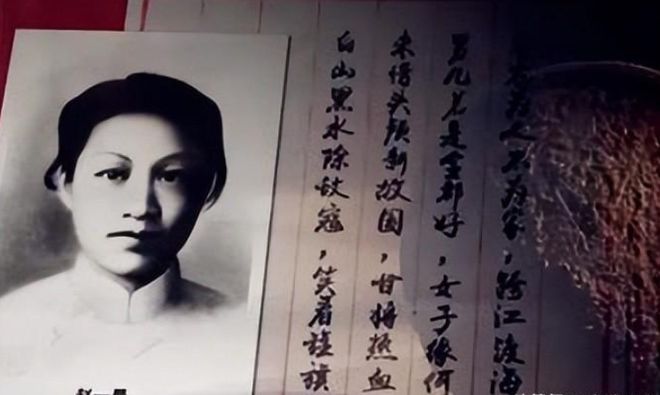 志为人不为家，跨江渡海
男儿若是全都好，女子缘何
未惜头颅新故国，甘将热血
白山黑水除敌寇，笑看旌旗